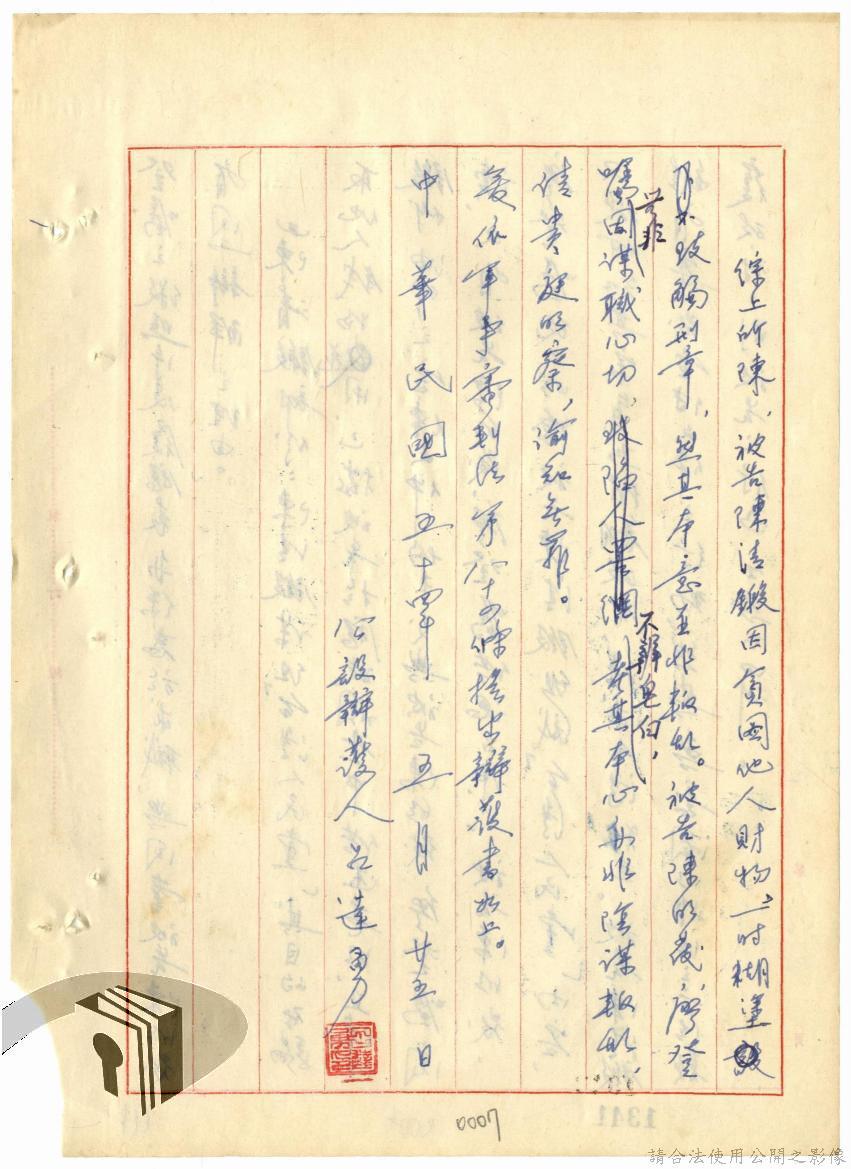 綜上所陳，被告陳清鍛因貪圖他人財物，一時糊塗
致觸刑章，然其本意並非叛亂。被告陳明義，廖登
囑因謀職心切，不辨皂白，其本心並非陰謀叛亂，
請貴庭明察，諭知無罪。
爰依軍事審判法第八十四條提出辯護書如上。
中華民國五十四年五月廿五日
公設辯護人呂達勇
0007
1341
請合法使用公開之影像